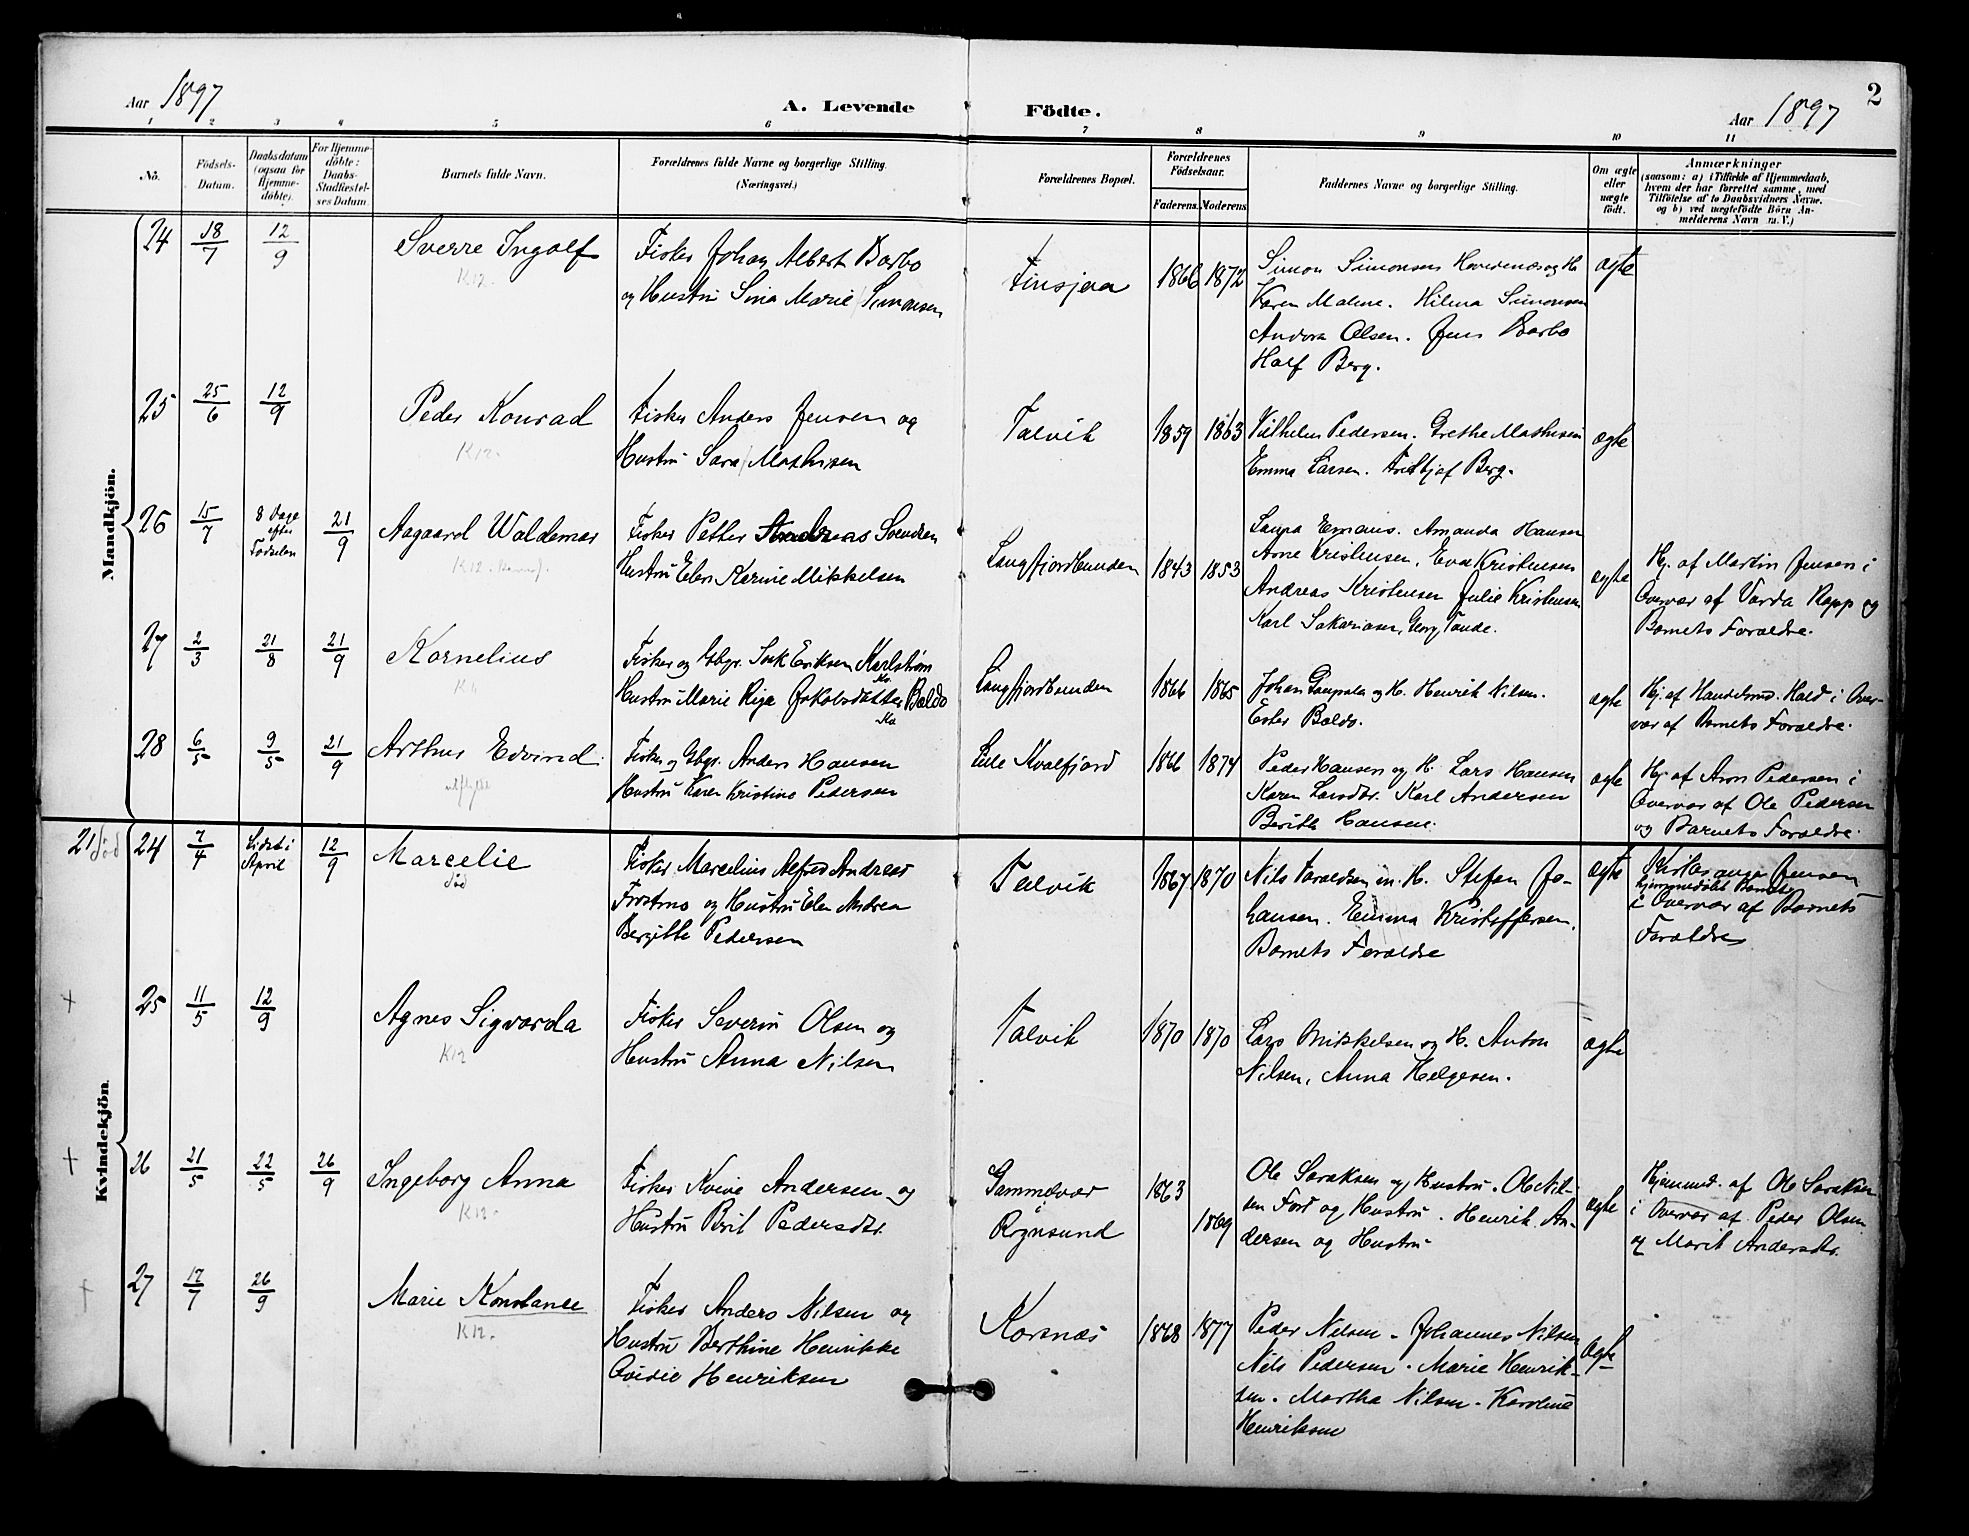 2
Aar 1897
A. Levende Födte.
Aar 1897
1 2 3 4 5 6 7 8 9 10 11
No.
Födsels-Datum.
Daabsdatum (ogsaa for Hjemme-döbte).
For Hjemme-döbte: Daabs-Stadfæstel-ses Datum.
Barnets fulde Navn.
Forældrenes fulde Navne og borgerlige Stilling.
(Næringsvei.)
Forældrenes Bopæl.
Forældrenes Födselsaar.
Faderens. Moderens.
Faddernes Navne og borgerlige Stilling.
Om ægte eller uægte födt.
Anmærkninger
(saasom: a) i Tilfælde af Hjemmedaab,
hvem der har forrettet samme, med
Tilföielse af to Daabsvidners Navne,
og b) ved uægtefödte Börn An-
melderens Navn m. V.)
Mandkjön.
24 18/7 12/9 Sverre Ingolf
K12.
Fisker Johan Albert Barbo
og Hustru Sina Marie Simonsen
Finsjaa 1866 1872
Simon Simonsen
Karen Malene. Hilma Simonsen
Andora Olsen. Jens Barbo
Half Berg.
ægte
25 25/6 12/9 Peder Konrad
K12.
Fisker Anders Jensen og
Hustru Sara Mathisen
Talvik 1859 1863
Vilhelm Pedersen. Grethe Mathisen
Emma Larsen. Fritjof Berg.
ægte
26 15/7 8 Dage efter Fødselen 21/9 Aagaard Waldemar
K12.
Fisker Petter Andreas Svendsen
Hustru Elen Karine Mikkelsen
Langfjordbunden 1843 1853
Laura Emaus. Amanda Hansen
Arne Kristensen, Eva Kristensen
Andreas Kristensen Julie Kristensen
Karl Sakariasen, Georg Tande.
ægte
Hj. af Martin Jensen i
Overvær af Varda Rapp og
Barnets Forældre.
27 2/3 21/8 21/9 Kornelius
Fisker og Gbgr. Isak Eriksen Karlstrøm
Hustru Marie Risa Jakobsdatter Baldo
Langfjordbunden 1866 1865
Johan og H. Henrik Nilsen.
Ester Baldo.
ægte
Hj. af Handelsmd. Hald i Over-
vær af Barnets Forældre.
28 6/5 9/5 21/9 Arthur Edvind.
utflytt
Fisker og Gbgr. Anders Hansen
Hustru Karen Kristine Pedersen
Lille Kvalfjord 1866 1874
Peder Hansen og H. Lars Hansen
Karen Larsdtr. Karl Andersen
Berith Hansen.
ægte
Hj. af Arn Pedersen i
Overvær af Ole Pedersen
og Barnets Forældre.
Kvindekjön.
21 død 24 7/4 Sidst i April 12/9 Marcelie
død
Fisker Marcelius Alfred Andreas
Frostmo og Hustru Elen Andrea
Bergitte Pedersen
Talvik 1867 1870
Nils Taraldsen m. H. Stefan Jo-
hansen. Emma Kristoffersen.
Barnets Forældre
ægte
Jensen
hjemmedøbt Barnet
i Overvær af Barnets
Forældre
+ 25 11/5 12/9 Agnes Sigvarda
K12
Fisker Severin Olsen og
Hustru Anna Nilsen
Talvik 1870 1870
Lars Mikkelsen og H. Anton
Nilsen, Anna Helgesen.
ægte
+ 26 21/5 22/5 26/9 Ingeborg Anna
K12.
Fisker Andersen og
Hustru Berit Pedersdtr.
Gammelvær
Rognsund
1863 1869
Ole Saraksen og Hustru. Ole Nil-
sen Ford og Hustru. Henrik An-
dersen og Hustru
ægte
Hjemmd. af Ole Saraksen
i Overvær af Peder Olsen
og Marit Andersdtr.
+ 27 17/7 26/9 Marie Konstanse
K12.
Fisker Anders Nilsen og
Hustru Berthine Henrikke
Ovidie Henriksen
Korsnæs 1868 1877
Peder Nilsen - Johannes Nilsen
Nils Pedersen. Marie Henrik-
sen. Martha Nilsen. Karoline
Henriksen
ægte